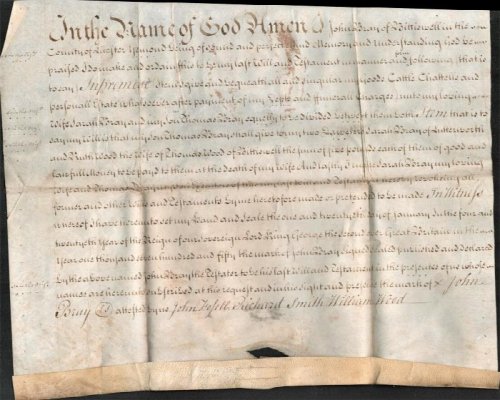 In the Name of God Amen I John Bray of Bittiswell in the
County of Leicester Yeoman being of sound and perfect mind Memory and Understanding God be
praised I do make and ordain this to be my last Will and Testament in manner and following that is
to say Imprimis Item I give and bequeath all and singular my Goods Cattle Chattells and
personall Estate whatsoever after payment of my Debts and ffuneral Charges unto my loving
Wife Sarah Bray and my Son Thomas Bray equally to be divided between them both Item that is to
say my Will is that my Son Thomas Bray shall give to my two Daughters Sarah Bray of
and Ruth Wood the Wife of Thomas Wood of Bittiswell the sum of five pounds each of them of good
lawfull Money to be paid to them at the death of my Wife And lastly I make Sarah Bray my loving
Wife and Thomas Bray my Son of this my last Will and Testament hereby revoking all
former and other Wills and Testaments by me heretofore made or pretended to be made In Witness
whereof I have hereunto set my Hand and Seale the one and twentieth day of January In the four and
twentieth Year of the Reign of our Sovereign Lord King George the second over Great Britain &c in the
year one thousand seven hundred and fifty the mark of John Bray Signed Sealed published and declared
by the above named John Bray the Testator to be his last Will and Testament in the presence of us whose
names are hereunto subscribed at his request and in his sight and presence the mark of x John
Bray attested by us John Richard Smith William Wood